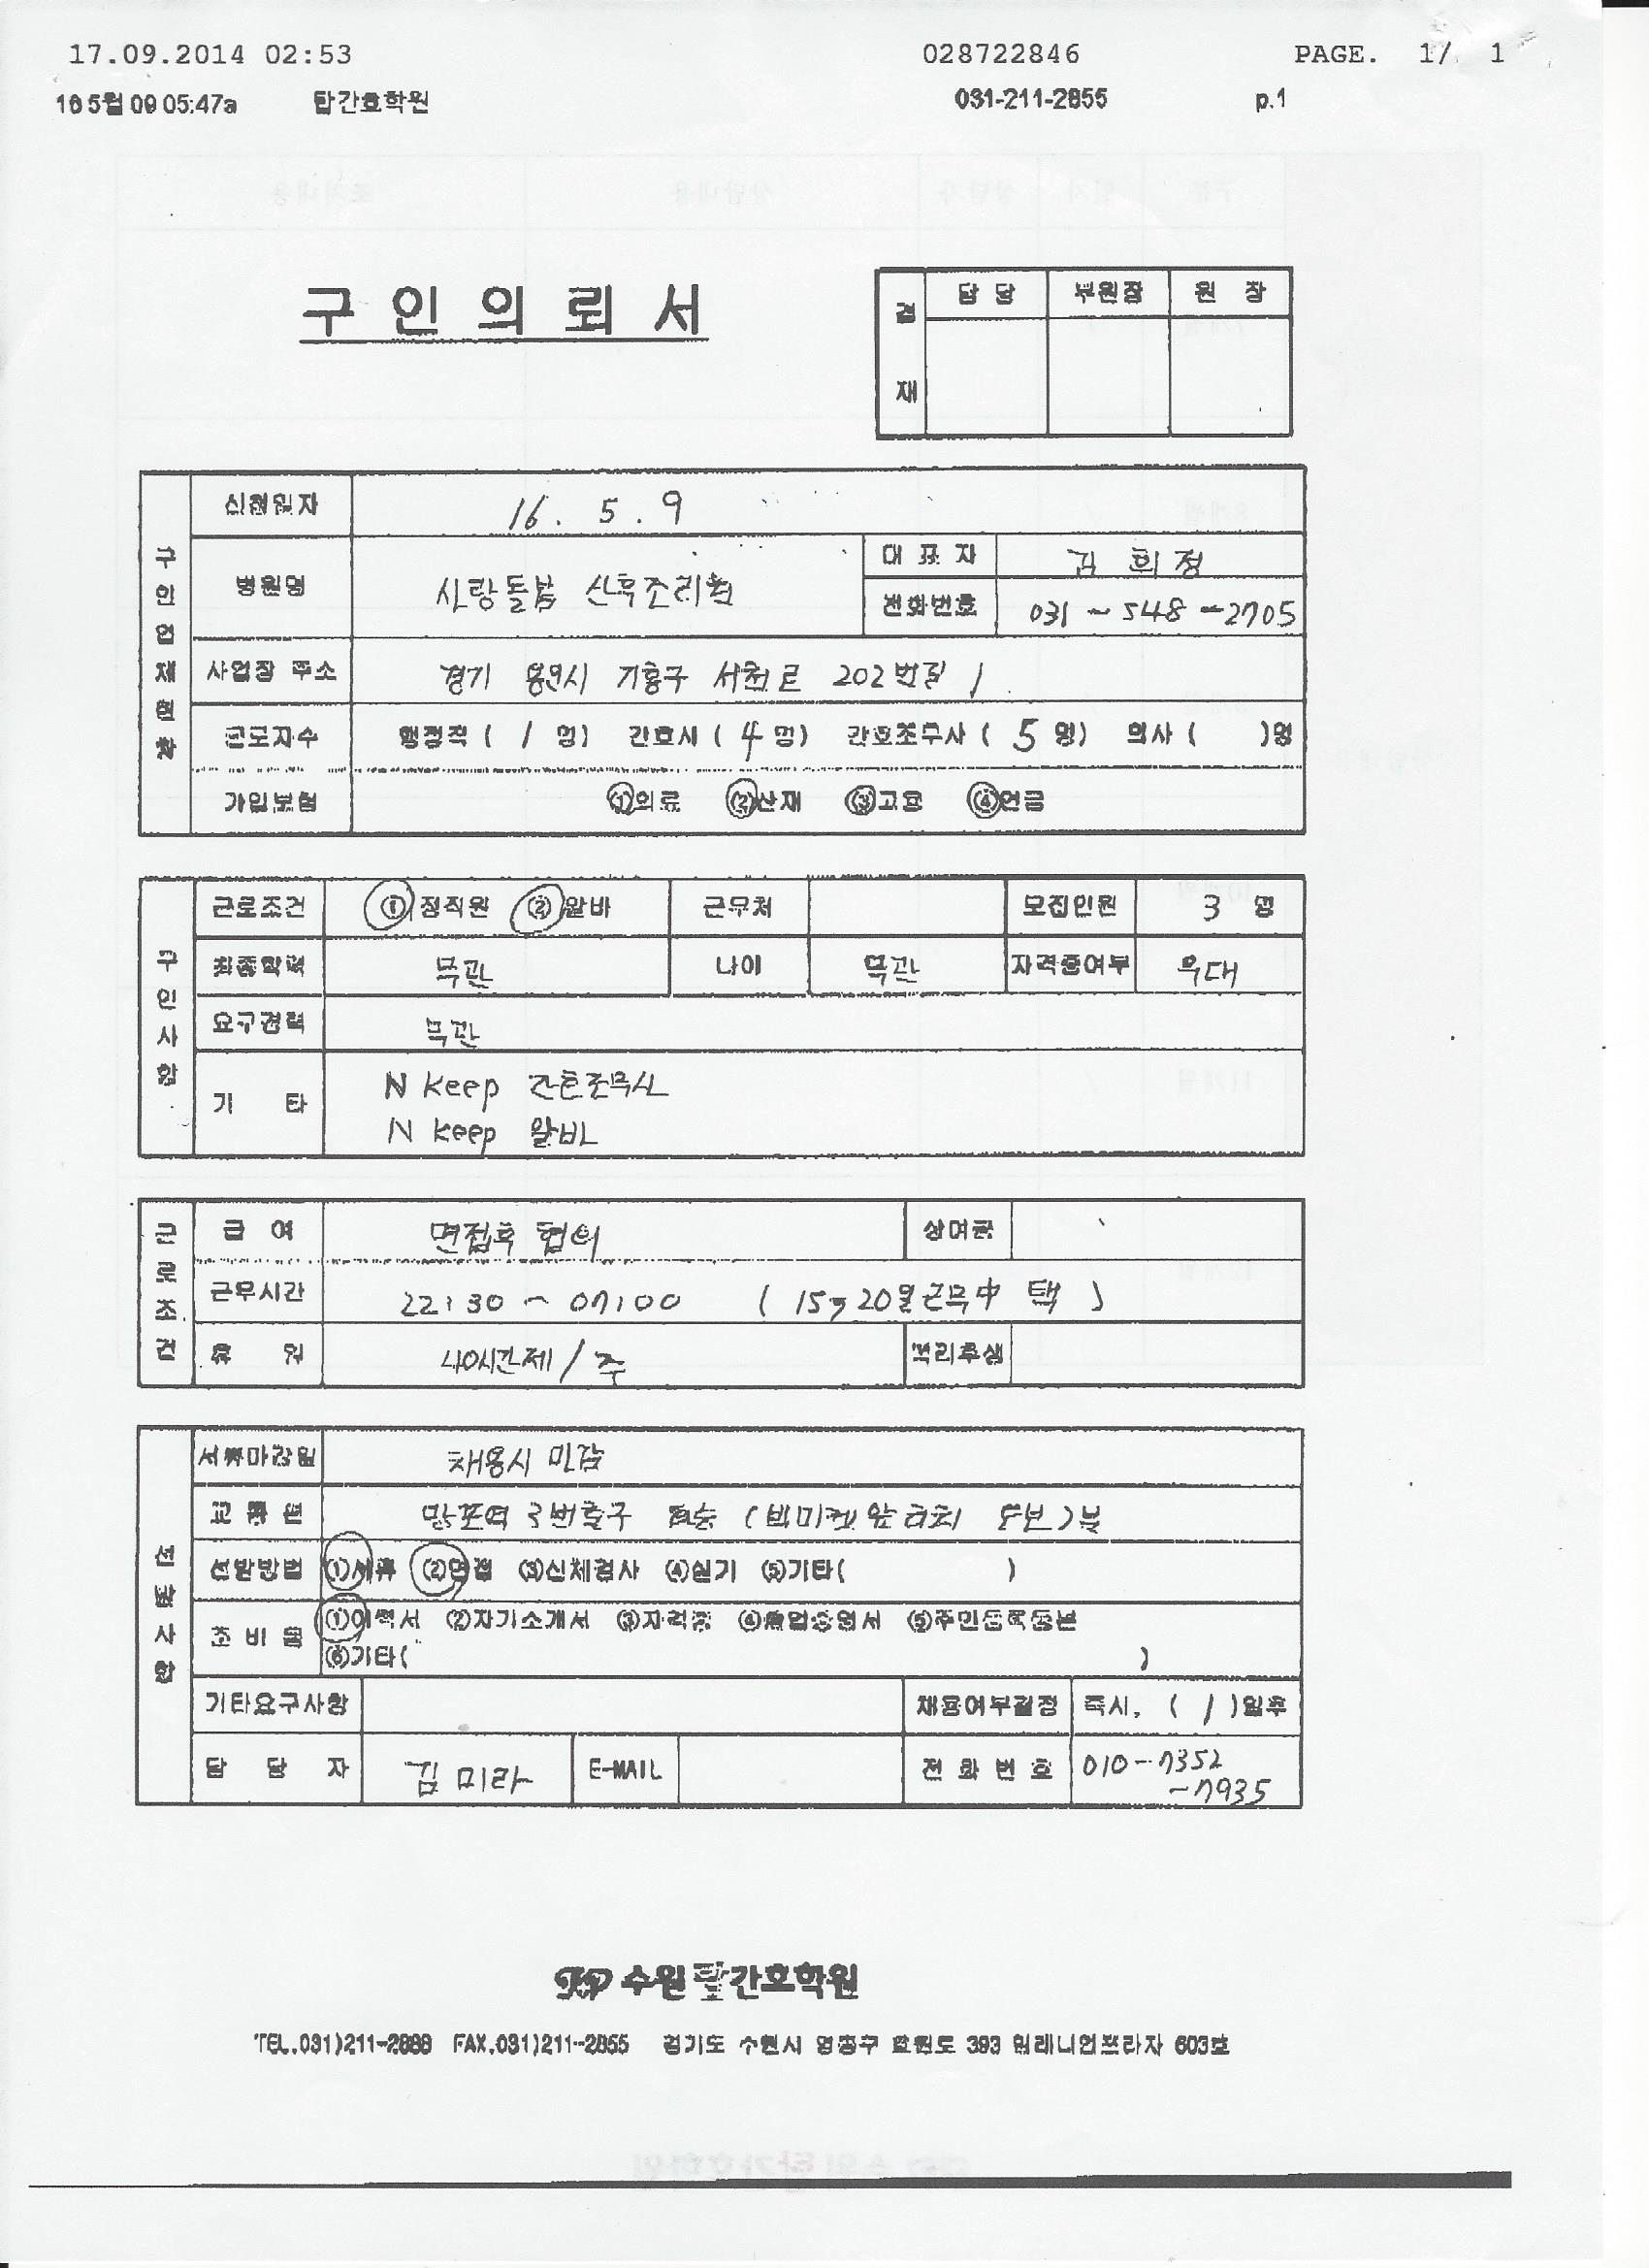 17.09.2014 02:53 028722846 PAGE. 1/ 1
16 5월 09 05:47a 탑간호학원 031-211-2855 p.1
구 인 의 뢰 서
결재 담 당 부원장 원 장
구인업체현황
신청일자 16. 5. 9
병원명 사랑돌봄 산후조리원 대 표 자 김 희 정
전화번호 031-548-2705
사업장 주소 경기 용인시 기흥구 서천로 202번길 1
근로자수 행정직 ( 1 명) 간호사 ( 4 명) 간호조무사 ( 5 명) 의사 ( )명
가입보험 ①의료 ②산재 ③고용 ④연금
구인사항
근로조건 ①정직원 ②알바 근무처 모집인원 3 명
최종학력 무관 나이 무관 자격증여부 우대
요구경력 무관
기 타 N keep 간호조무사
N keep 알바
근로조건
급 여 면접후 협의 상여금
근무시간 22:30~07:00 ( 15, 20일근무中 택 )
휴 일 40시간제/주 복리후생
전형사항
서류마감일 채용시 마감
교통편 망포역 3번출구 ( 도보 ) 분
선발방법 ①서류 ②면접 ③신체검사 ④실기 ⑤기타( )
준비물 ①이력서 ②자기소개서 ③자격증 ④졸업증명서 ⑤주민등록등본
⑥기타( )
기타요구사항 채용여부결정 즉시, ( 1 )일후
담 당 자 김 미라 E-MAIL 전 화 번 호 010-7352
-7935
TOP 수원탑간호학원
TEL.031)211-2888 FAX.031)211-2855 경기도 수원시 영통구 393 밀레니엄프라자 603호